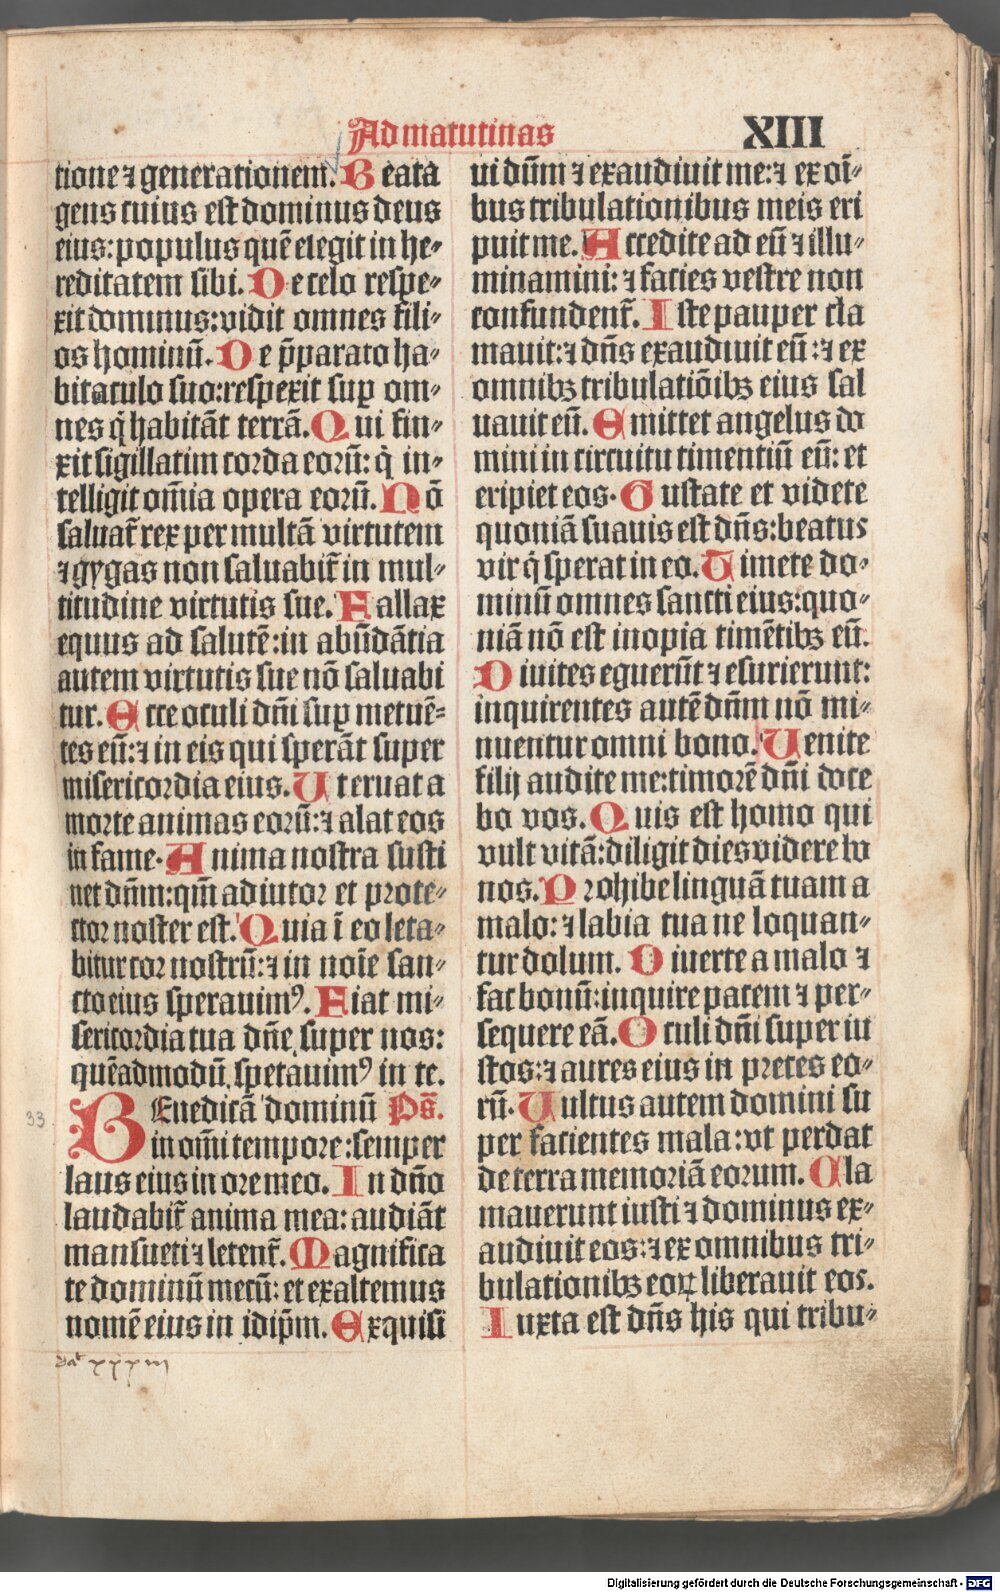 Ad matutinas
XIII
tione ⁊ generationem. Beata
gens cuius est dominus deus
eius: populus quē elegit in he⸗
reditatem sibi. De celo respe⸗
xit dominus: vidit omnes fili⸗
os hominū. De p̄parato ha⸗
bitaculo suo: respexit suꝑ om⸗
nes q̇ habitāt terrā. Qui fin⸗
xit sigillatim corda eorū: q̇ in⸗
telligit om̄ia opera eorū. Nō
saluat᷑ rex per multā virtutem
⁊ gygas non saluabit᷑ in mul⸗
titudine virtutis sue. Fallax
equus ad salutē: in abūdātia
autem virtutis sue nō saluabi
tur. Ecce oculi dn̄i suꝑ metuē⸗
tes eū: ⁊ in eis qui sperāt super
misericordia eius. Ut eruat a
morte animas eorū: ⁊ alat eos
in fame. Anima nostra susti
net dn̄m: qm̄ adiutor et prote⸗
ctor noster est. Quia ī eo leta⸗
bitur cor nostrū: ⁊ in noīe san⸗
cto eius sperauimꝰ. Fiat mi⸗
sericordia tua dn̄e super nos:
quēadmodū speravimꝰ in te.
33
Benedicā dominū Ps̄.
in om̄i tempore: semper
laus eius in ore meo. In dn̄o
laudabit᷑ anima mea: audiāt
mansueti ⁊ letent᷑. Magnifica
te dominū mecū: et exaltemus
nomē eius in idip̄m. Exquisi
xxxiii
ui dūm ⁊ exaudiuit me: ⁊ ex oī⸗
bus tribulationibus meis eri
puit me. Accedite ad eū ⁊ illu⸗
minamini: ⁊ facies vestre non
confundent᷑. Iste pauper cla
mauit: ⁊ dn̄s exaudiuit eū: ⁊ ex
omnibꝫ tribulatiōibꝫ eius sal
uauit eū. Emittet angelus do
mini in circuitu timentiū eū: et
eripiet eos. Gustate et videte
quoniā suauis est dn̄s: beatus
vir q̇ sperat in eo. Timete do⸗
minū omnes sancti eius: quo⸗
niā nō est inopia timētibꝫ eū.
Diuites eguerūt ⁊ esurierunt:
inquirentes autē dn̄m nō mi⸗
nuentur omni bono. Uenite
filij audite me: timorē dn̄i doce
bo vos. Quis est homo qui
vult vitā: diligit dies videre bo
nos. Prohibe linguā tuam a
malo: ⁊ labia tua ne loquan⸗
tur dolum. Diuerte a malo ⁊
fac bonū: inquire pacem ⁊ per⸗
sequere eā. Oculi dn̄i super iu
stos: ⁊ aures eius in preces eo⸗
rū. Uultus autem domini su
per facientes mala: vt perdat
de terra memoriā eorum. Cla
mauerunt iusti ⁊ dominus ex⸗
audiuit eos: ⁊ ex omnibus tri⸗
bulationibꝫ eoꝝ liberauit eos.
Iuxta est dn̄s his qui tribu⸗
Digitalisierung gefördert durch die Deutsche Forschungsgemeinschaft - DFG